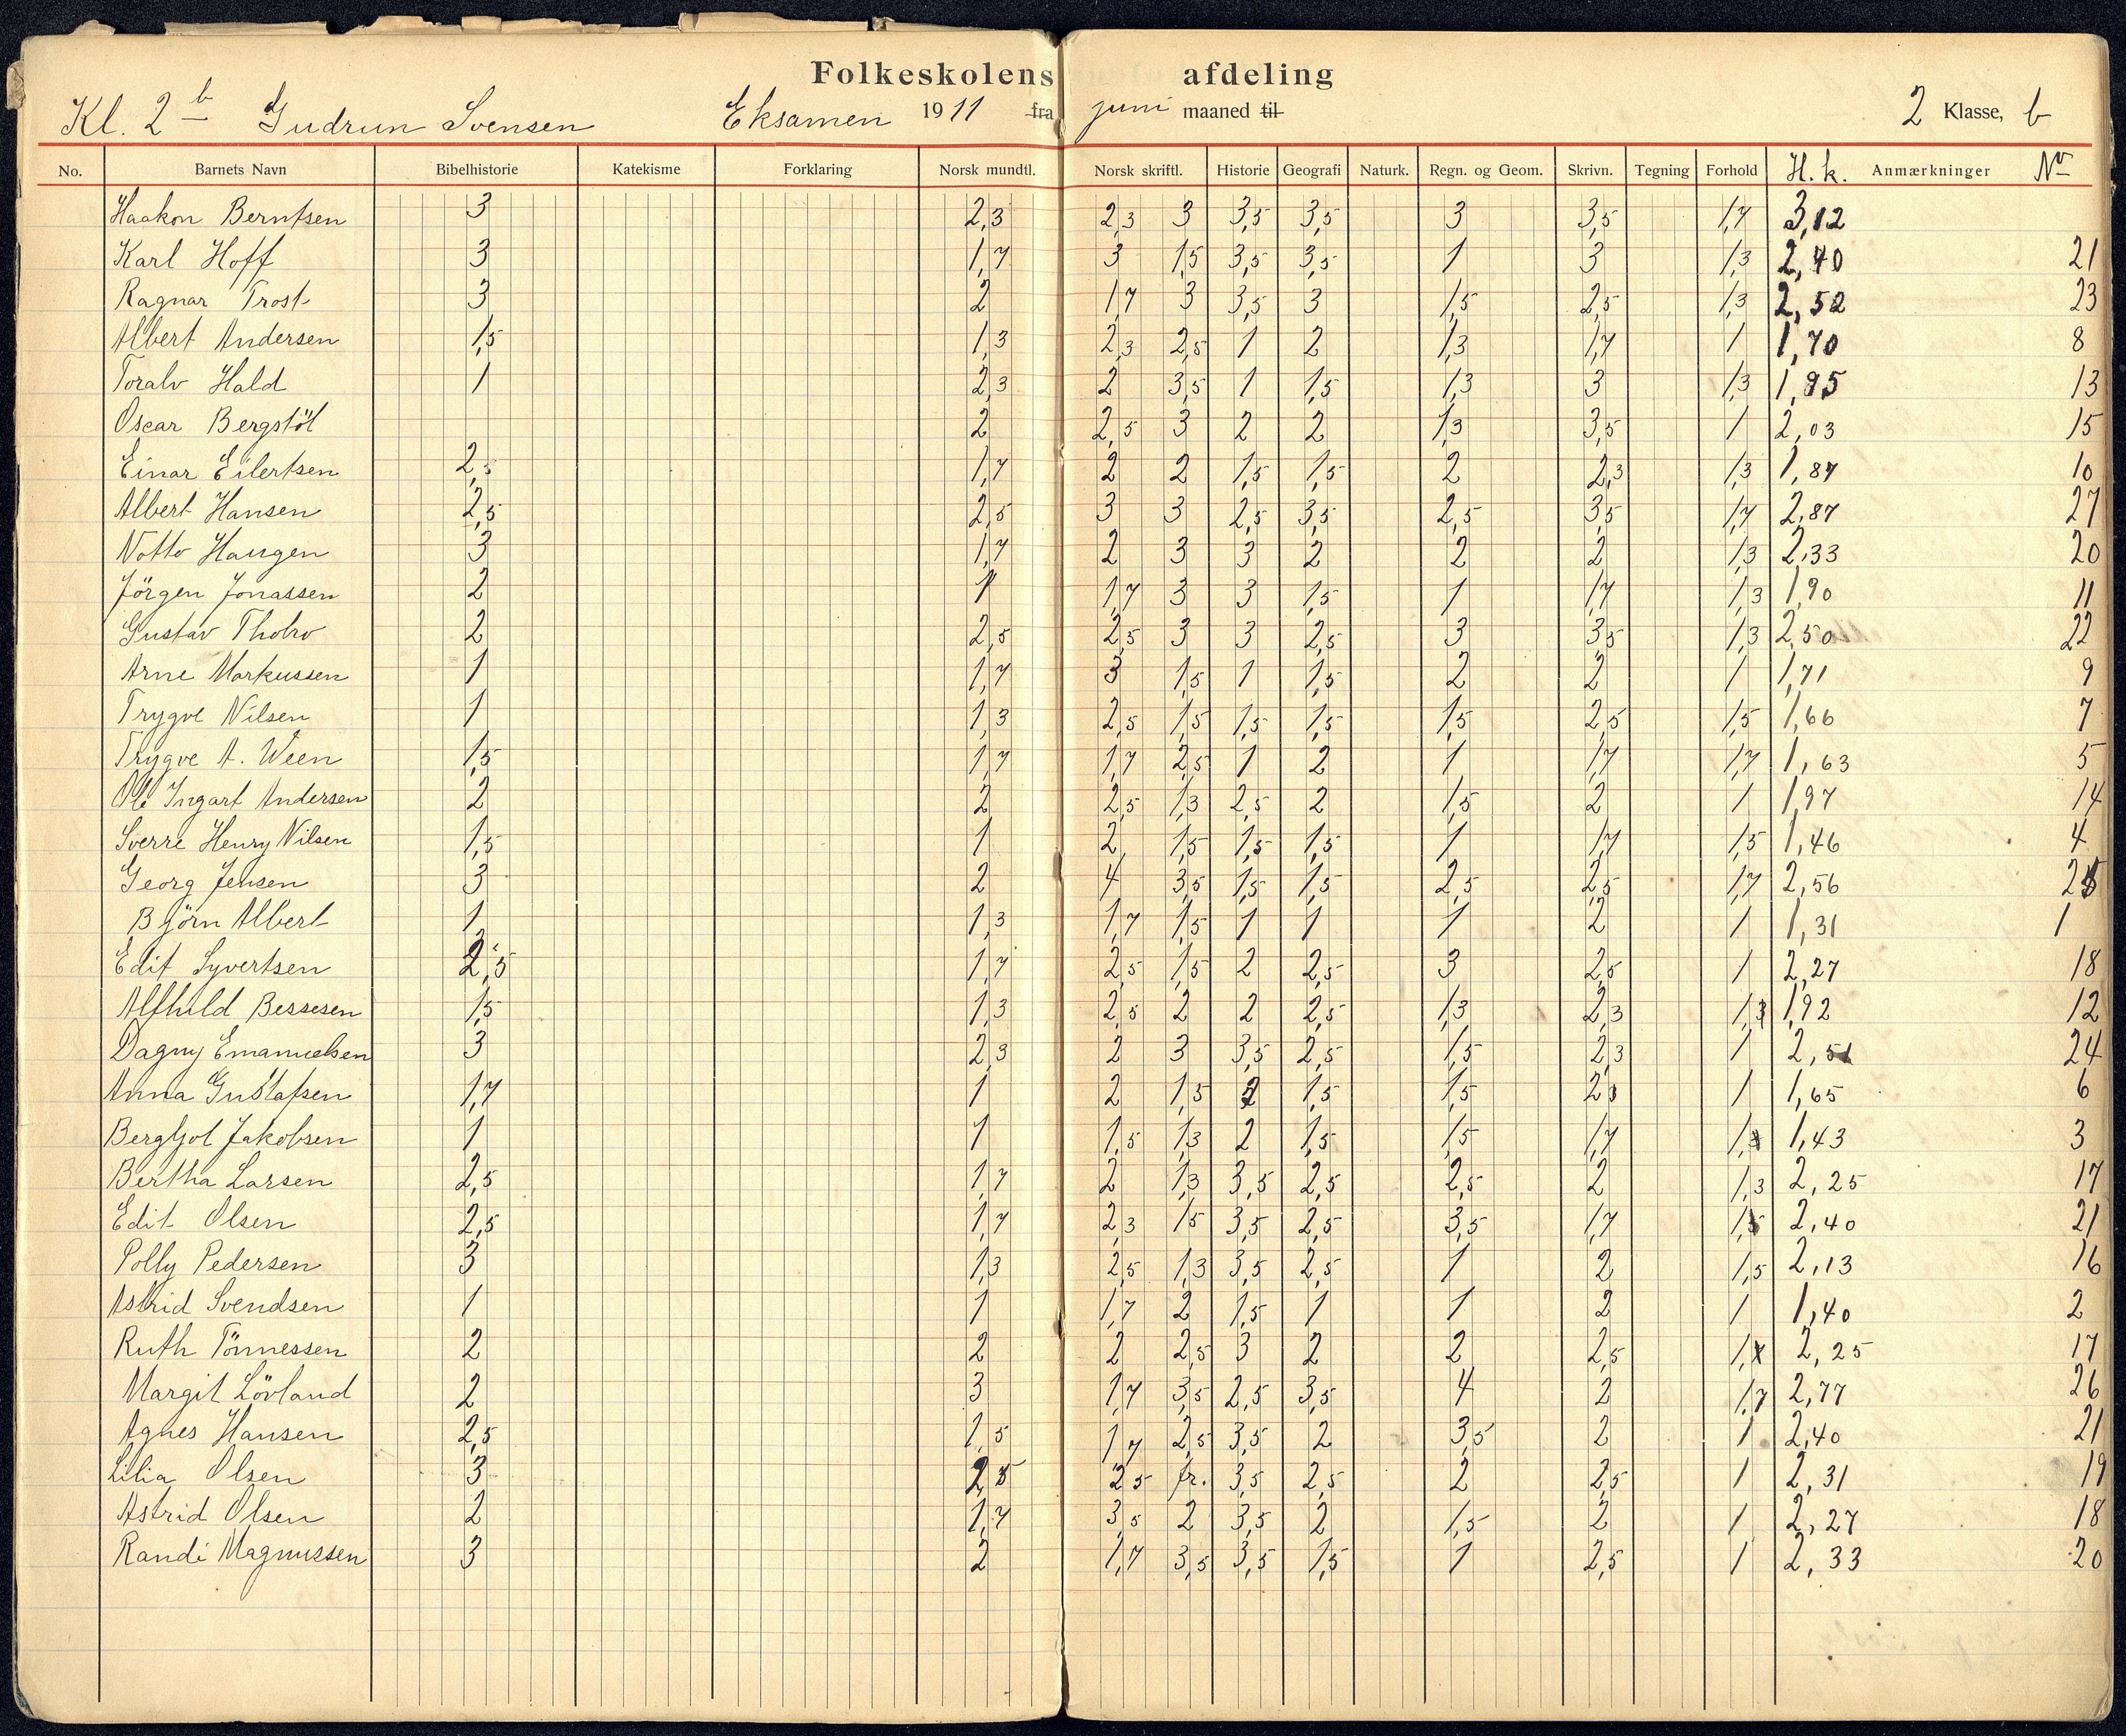 Folkeskolens afdeling
Kl. 2 b Gudrun Svensen Eksamen 1911 fra juni maaned til 2 Klasse, b
No. Barnets Navn Bibelhistorie Katekisme Forklaring Norsk mundtl. Norsk skriftl. Historie Geografi Naturk. Regn. og Geom. Skrivn. Tegning Forhold H.k. Anmærkninger Nr
Haakon Berntsen 3 2,3 2,3 3 3,5 3,5 3 3,5 1,7 3,12
Karl Hoff 3 1,7 3 1,5 3,5 3,5 1 3 1,3 2,40 21
Ragnar Trost 3 2 1,7 3 3,5 3 1,5 2,5 1,3 2,52 23
Albert Andersen 1,5 1,3 2,3 2,5 1 2 1,3 1,7 1 1,70 8
Toralv Hald 1 2,3 2 3,5 1 1,5 1,3 3 1,3 1,95 13
Oscar Bergstöl 2 2,5 3 2 2 1,3 3,5 1 2,03 15
Einar Eilertsen 2,5 1,7 2 2 1,5 1,5 2 2,3 1,3 1,87 10
Albert Hansen 2,5 2,5 3 3 2,5 3,5 2,5 3,5 1,7 2,87 27
Notto Haugen 3 1,7 2 3 3 2 2 2 1,3 2,33 20
Jörgen Jonassen 2 1 1,7 3 3 1,5 1 1,7 1,3 1,90 11
Gustav Thobro 2 2,5 2,5 3 3 2,5 3 3,5 1,3 2,50 22
Arne Markussen 1 1,7 3 1,5 1 1,5 2 2 1 1,71 9
Trygve Nilsen 1 1,3 2,5 1,5 1,5 1,5 1,5 2,5 1,5 1,66 7
Trygve A. Ween 1,5 1,7 1,7 2,5 1 2 1 1,7 1,7 1,63 5
Ole Ingart Andersen 2 2 2,5 1,3 2,5 2 1,5 2 1 1,97 14
Sverre Henry Nilsen 1,5 1 2 1,5 1,5 1,5 1 1,7 1,5 1,46 4
Georg Jensen 3 2 4 3,5 1,5 1,5 2,5 2,5 1,7 2,56 25
Björn Albert 1 1,3 1,7 1,5 1 1 1 2 1 1,31 1
Edit Syvertsen 2,5 1,7 2,5 1,5 2 2,5 3 2,5 1 2,27 18
Alfhild Bessesen 1,5 1,3 2,5 2 2 2,5 1,3 2,3 1,3 1,92 12
Dagny Emanuelsen 3 2,3 2 3 3,5 2,5 1,5 2,3 1 2,51 24
Anna Gustafsen 1,7 1 2 1,3 2 1,5 1,5 2,3 1 1,65 6
Bergljot Jakobsen 1 1 1,5 1,3 2 1,5 1,5 1,7 1, 1,43 3
Bertha Larsen 2,5 1,7 2 1,3 3,5 2,5 2,5 2 1,3 2,25 17
Edit Olsen 2,5 1,7 2,3 1,5 3,5 2,5 3,5 1,7 1,5 2,40 21
Polly Pedersen 3 1,3 2,5 1,3 3,5 2,5 1 2 1,5 2,13 16
Astrid Svendsen 1 1 1,7 2 1,5 1 1 2 1 1,40 2
Ruth Tönnessen 2 2 2 2,5 3 2 2 2,5 1, 2,25 17
Margit Lövland 2 3 1,7 3,5 2,5 3,5 4 2 1,7 2,77 26
Agnes Hansen 2,5 1,5 1,7 2,5 3,5 2 3,5 2 1 2,40 21
Lilia Olsen 3 2,5 2,5 fr. 3,5 2,5 2 2,5 1 2,31 19
Astrid Olsen 2 1,7 3,5 2 3,5 2 1,5 2 1 2,27 18
Randi Magnussen 3 2 1,7 3,5 3,5 1,5 1 2,5 1 2,33 20